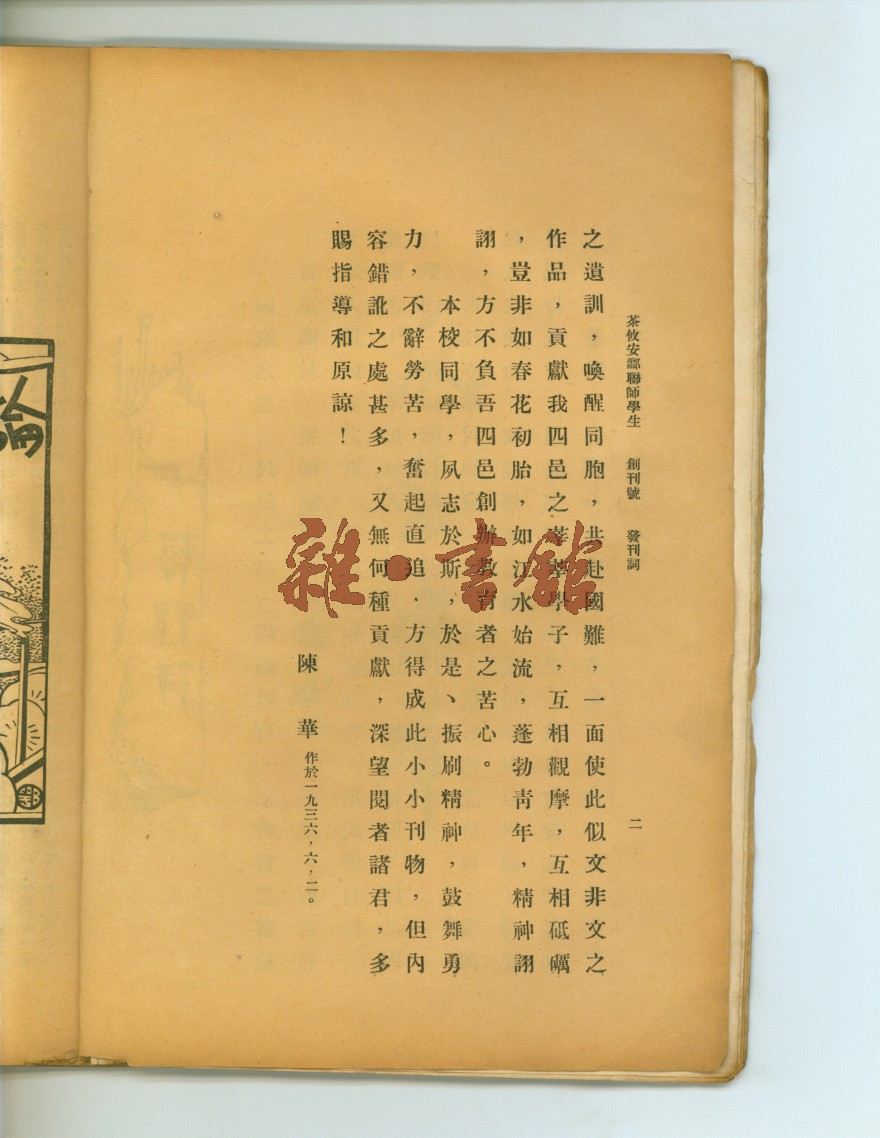 茶攸安酃聯師學生　創刊號　發刊詞
二
之遺訓，喚醒同胞，共赴國難，一面使此似文非文之
作品，貢獻我四邑之莘莘學子，互相觀摩，互相砥礪
，豈非如春花初胎，如江水始流，蓬勃靑年，精神詡
詡，方不負吾四邑創辦教育者之苦心。
本校同學，夙志於斯，於是、振刷精神，鼓舞勇
力，不辭勞苦，奮起直追．方得成此小小刊物，但內
容錯訛之處甚多，又無何種貢獻，深望閱者諸君，多
賜指導和原諒！
陳　華　作於一九三六，六，二。
論
雜·書館